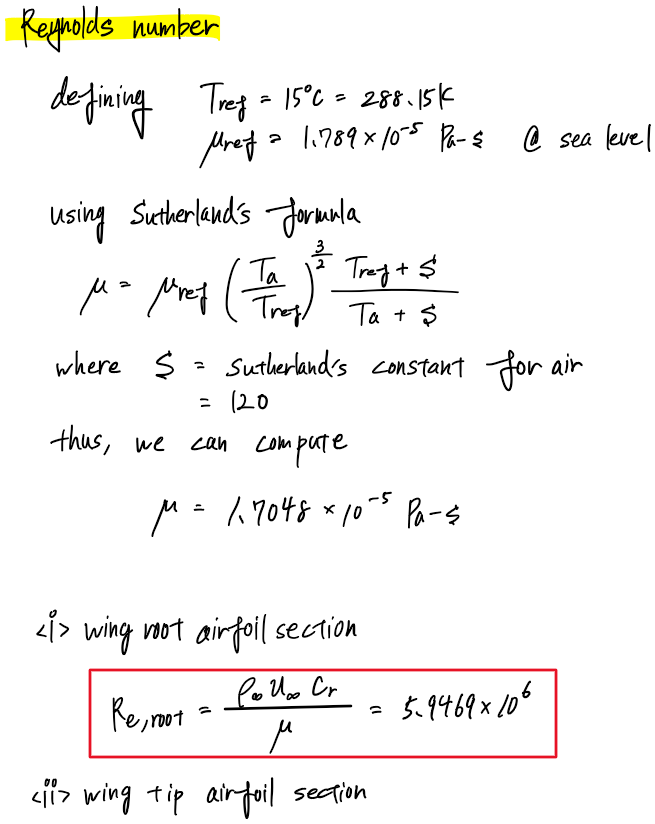 Reynolds number
defining Tref = 15°C = 288.15K
μref = 1.789 × 10^-5 Pa-s @ sea level
using Sutherland's formula
μ = μref (Ta / Tref)^(3/2) (Tref + S) / (Ta + S)
where S = Sutherland's constant for air
= 120
thus, we can compute
μ = 1.7048 × 10^-5 Pa-s
<i> wing root airfoil section
Re,root = ρ∞ U∞ Cr / μ = 5.9469 × 10^6
<ii> wing tip airfoil section